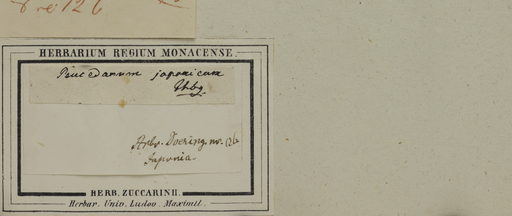 126
HERBARIUM REGIUM MONACENSE
Peucedanum japonicum
Thbg
Herb. Doering. no. 126
Japonia.
HERB. ZUCCARINII.
Herbar. Univ. Ludov. Maximil.